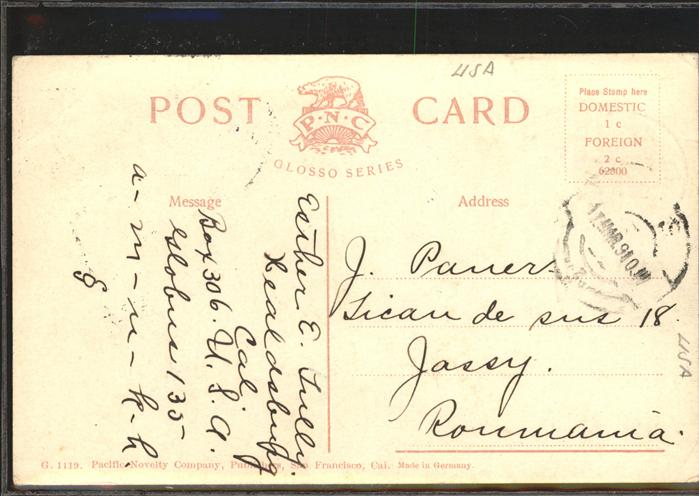 USA
POST CARD
P·N·C
GLOSSO SERIES
Place Stamp here
DOMESTIC
1 c
FOREIGN
2 c
62800
Message
Address
Esther E. Tully.
Healdsburg
Cal
Box 306 U.S.A.
Globus 135
a-m-n-k-h
8
J. Paner
Ticau de sus 18
Jassy.
Roumania.
USA
G. 1119. Pacific Novelty Company, Publishers, San Francisco, Cal. Made in Germany.